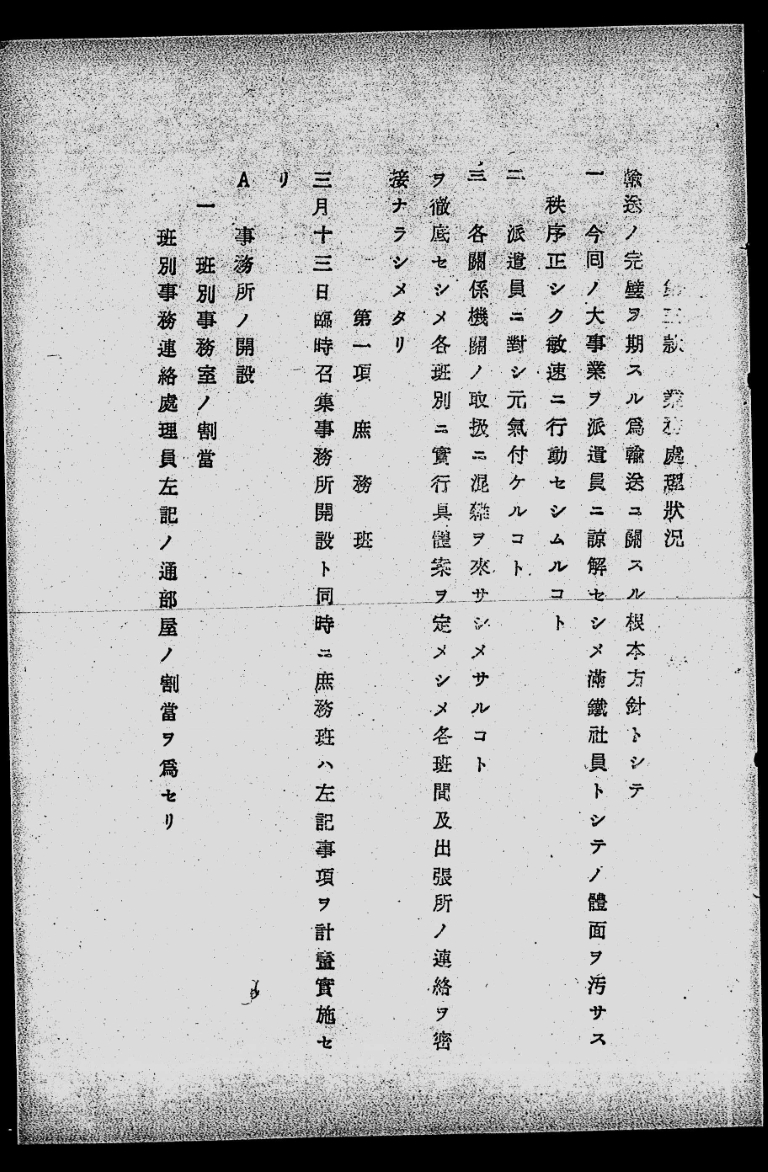 第三款 業務處理狀況
輸送ノ完璧ヲ期スル爲輸送ニ關スル根本方針トシテ
一 今囘ノ大事業ヲ派遣員ニ諒解セシメ滿鐵社員トシテノ體面ヲ汚サス
秩序正シク敏速ニ行動セシムルコト
二 派遣員ニ對シ元氣付ケルコト
三 各關係機關ノ取扱ニ混雜ヲ來サシメサルコト
ヲ徹底セシメ各班別ニ實行具體案ヲ定メシメ各班間及出張所ノ連絡ヲ密
接ナラシメタリ
第一項 庶務班
三月十三日臨時召集事務所開設ト同時ニ庶務班ハ左記事項ヲ計畫實施セ
リ
A 事務所ノ開設
一 班別事務室ノ割當
班別事務連絡處理員左記ノ通部屋ノ割當ヲ爲セリ